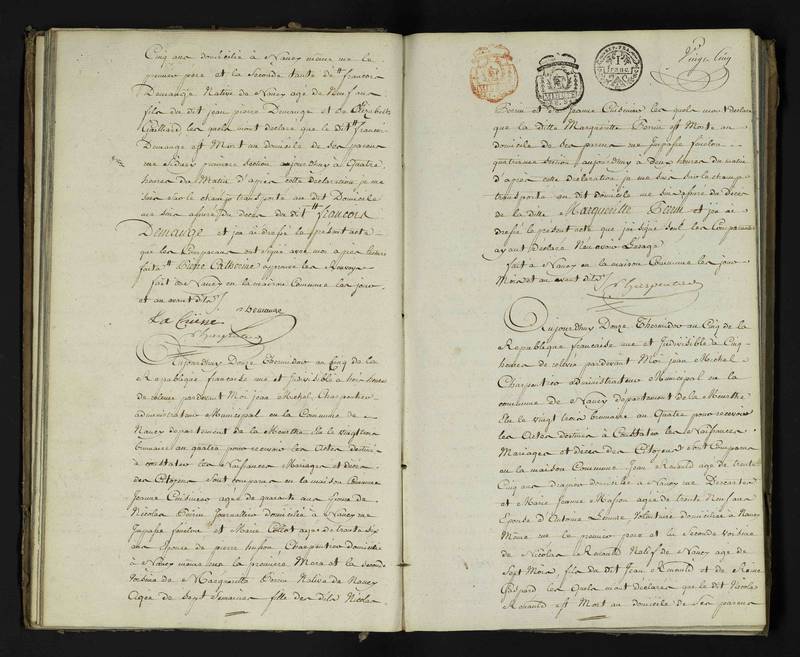 Cinq ans domiciliée à Nancy même rue le
premier pere et la Seconde tante de françois
Demange Native de Nancy age de Neuf ans
fils du dit jean pierre Demange et de
Gailliard les quels mont declare que le dit francois
Demange est Mort au domicile de Ses parens
rue premiere Section aujourdhuy à Quatre
heures du Matin d'après cette declaration je me
suis sur le champ transporté au dit Domicile
me suis assuré du deces du dit francois
Demange et jai ai dressé le present acte
que les Comparans ont signé avec moi après lecture
faite Pierre Catherine aprouve les
fait à Nancy en la maison Commune les jour
et an avant dits
Demange
La Cuisne
Charpentier
Aujourdhuy Douze Thermidor an Cinq de la
République francoise une et Indivisible à trois heures
de relevée pardevant Moi jean Michel Charpentier
administrateur Municipal en la Commune de
Nancy departement de la Meurthe Elu le vingt trois
brumaire an quatre pour recevoir les Actes destinés
à constater les Naissances Mariages et décès
des Citoyens Sont comparus en la maison Commune
Jeanne Cuisinier agée de quarante ans Epouse de
Nicolas Perin Journallier domiciliée à Nancy rue
Impasse et Marie Collot agée de trente Six
ans Epouse de pierre husson Charpentier domiciliée
à Nancy même rue la premiere Mere et la Seconde
Voisine de Marguerite Perin Native de Nancy
Agée de Sept Semaines fille des dits Nicolas
Vingt Cinq
REP. FRA.
1
franc
Perin et de Jeanne Cuisinier les quels mont declaré
que la ditte Margueritte Perin est Morte au
domicile de ses parens rue Impasse
quatrieme Section aujourdhuy à Deux heures du matin
d'après cette declaration je me suis sur le champ
transporté au dit domicile me suis assuré du Deces
de la ditte Margueritte Perin et jai ai
dressé le present acte que jai signé Seul les Comparans
ayant Declaré
fait à Nancy en la maison Commune les jour
Mois et an avant dits
Charpentier
Aujourdhuy Douze Thermidor an Cinq de la
Republique francaise une et Indivisible à Cinq
heures de relevée pardevant Moi jean Michel
Charpentier administrateur Municipal en la
commune de Nancy departement de la Meurthe
Elu le vingt trois brumaire an Quatre pour recevoir
les Actes destinés à Constater les Naissances
Mariages et deces des Citoyens Sont Comparus
en la maison Commune jean Renauld age de trente
Cinq ans domicilié à Nancy rue Descartes
et Marie Jeanne Masson agée de trente Neuf ans
Epouse d'Antoine Volontaire domiciliée à Nancy
Même rue le premier pere et la Seconde voisine
de Nicolas Renauld Natif de Nancy age de
Sept Mois, fils du dit Jean Renauld et de Reine
Gaspard les Quels mont declarés que le dit Nicolas
Renauld est Mort au domicile de Ses parens